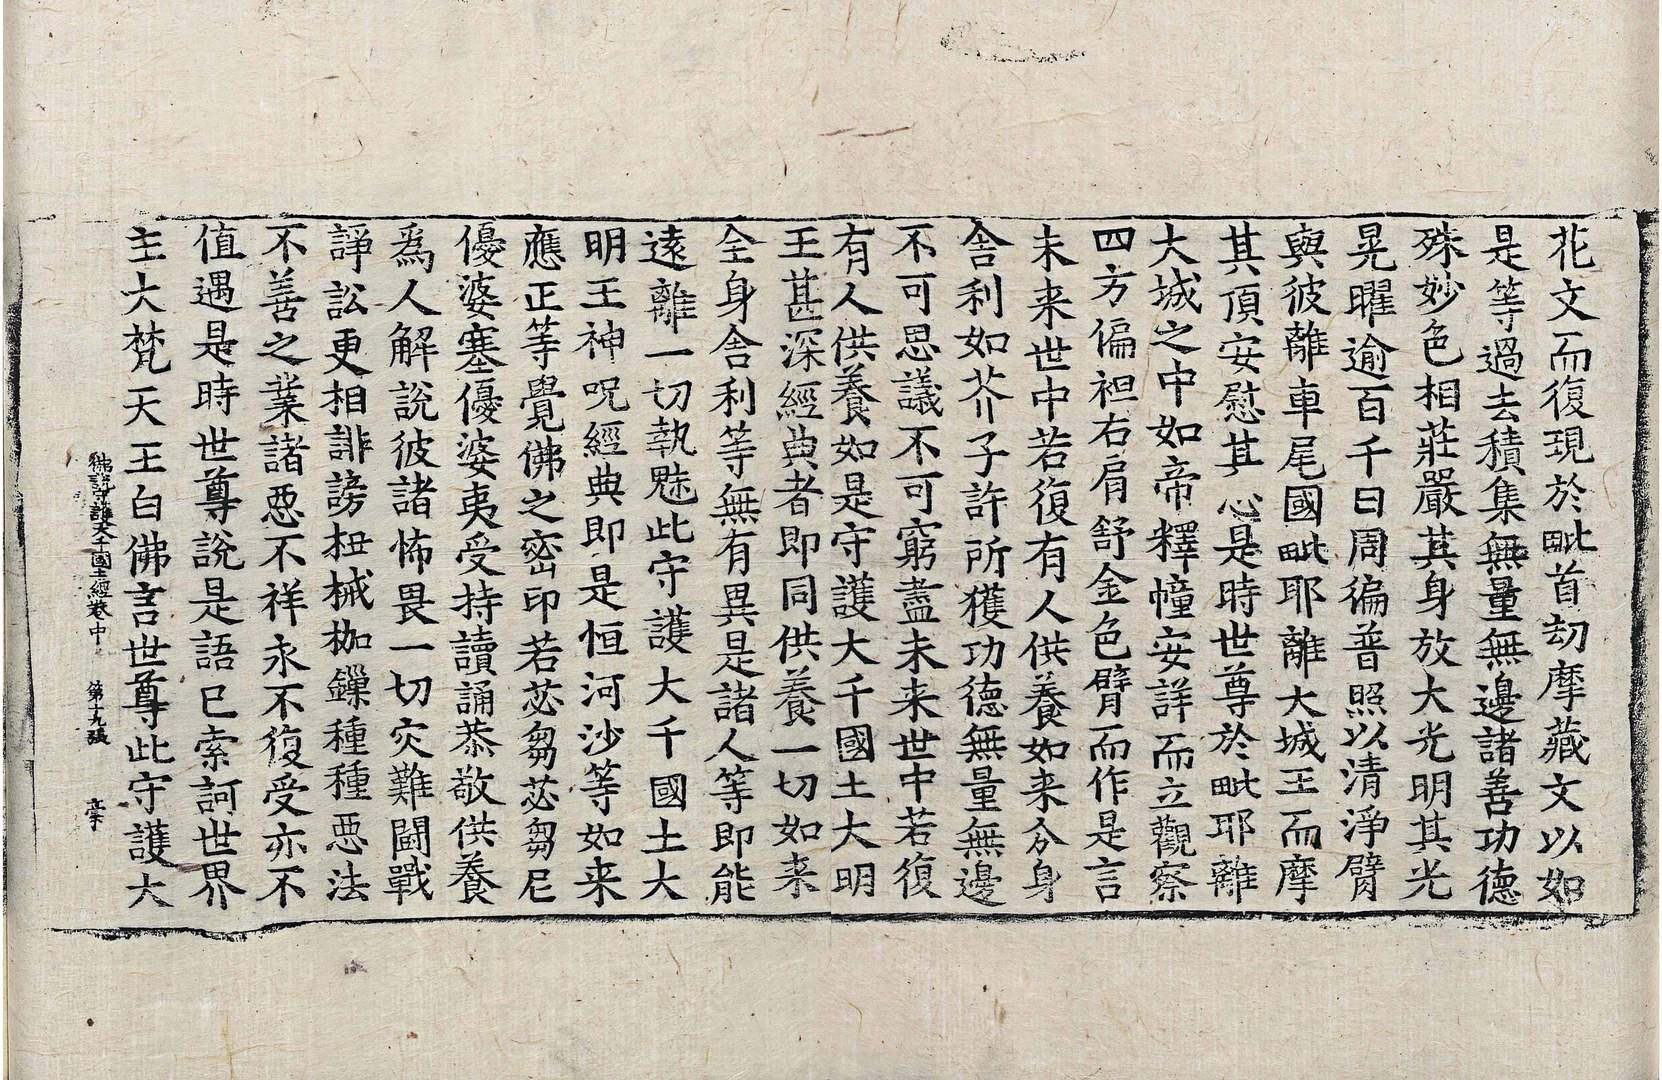 花文而復現於毗首刧摩藏文以如
是等過去積集無量無邊諸善功德
殊妙色相莊嚴其身放大光明其光
晃曜逾百千日周徧普照以清淨臂
與彼離車尾國毗耶離大城王而摩
其頂安慰其心是時世尊於毗耶離
大城之中如帝釋幢安詳而立觀察
四方偏袒右肩舒金色臂而作是言
未来世中若復有人供養如来分身
舎利如芥子許所獲功德無量無邊
不可思議不可窮盡未来世中若復
有人供養如是守護大千國土大明
王甚深經典者即同供養一切如来
全身舎利等無有異是諸人等即能
遠離一切執魅此守護大千國土大
明王神呪經典即是恒河沙等如来
應正等覺佛之密印若苾芻苾芻尼
優婆塞優婆夷受持讀誦恭敬供養
爲人解說彼諸怖畏一切灾難鬪戰
諍訟更相誹謗杻械枷鏁種種惡法
不善之業諸惡不祥永不復受亦不
值遇是時世尊說是語已索訶世界
主大梵天王白佛言世尊此守護大
佛說守護大千國土經卷中 第十九張 亭